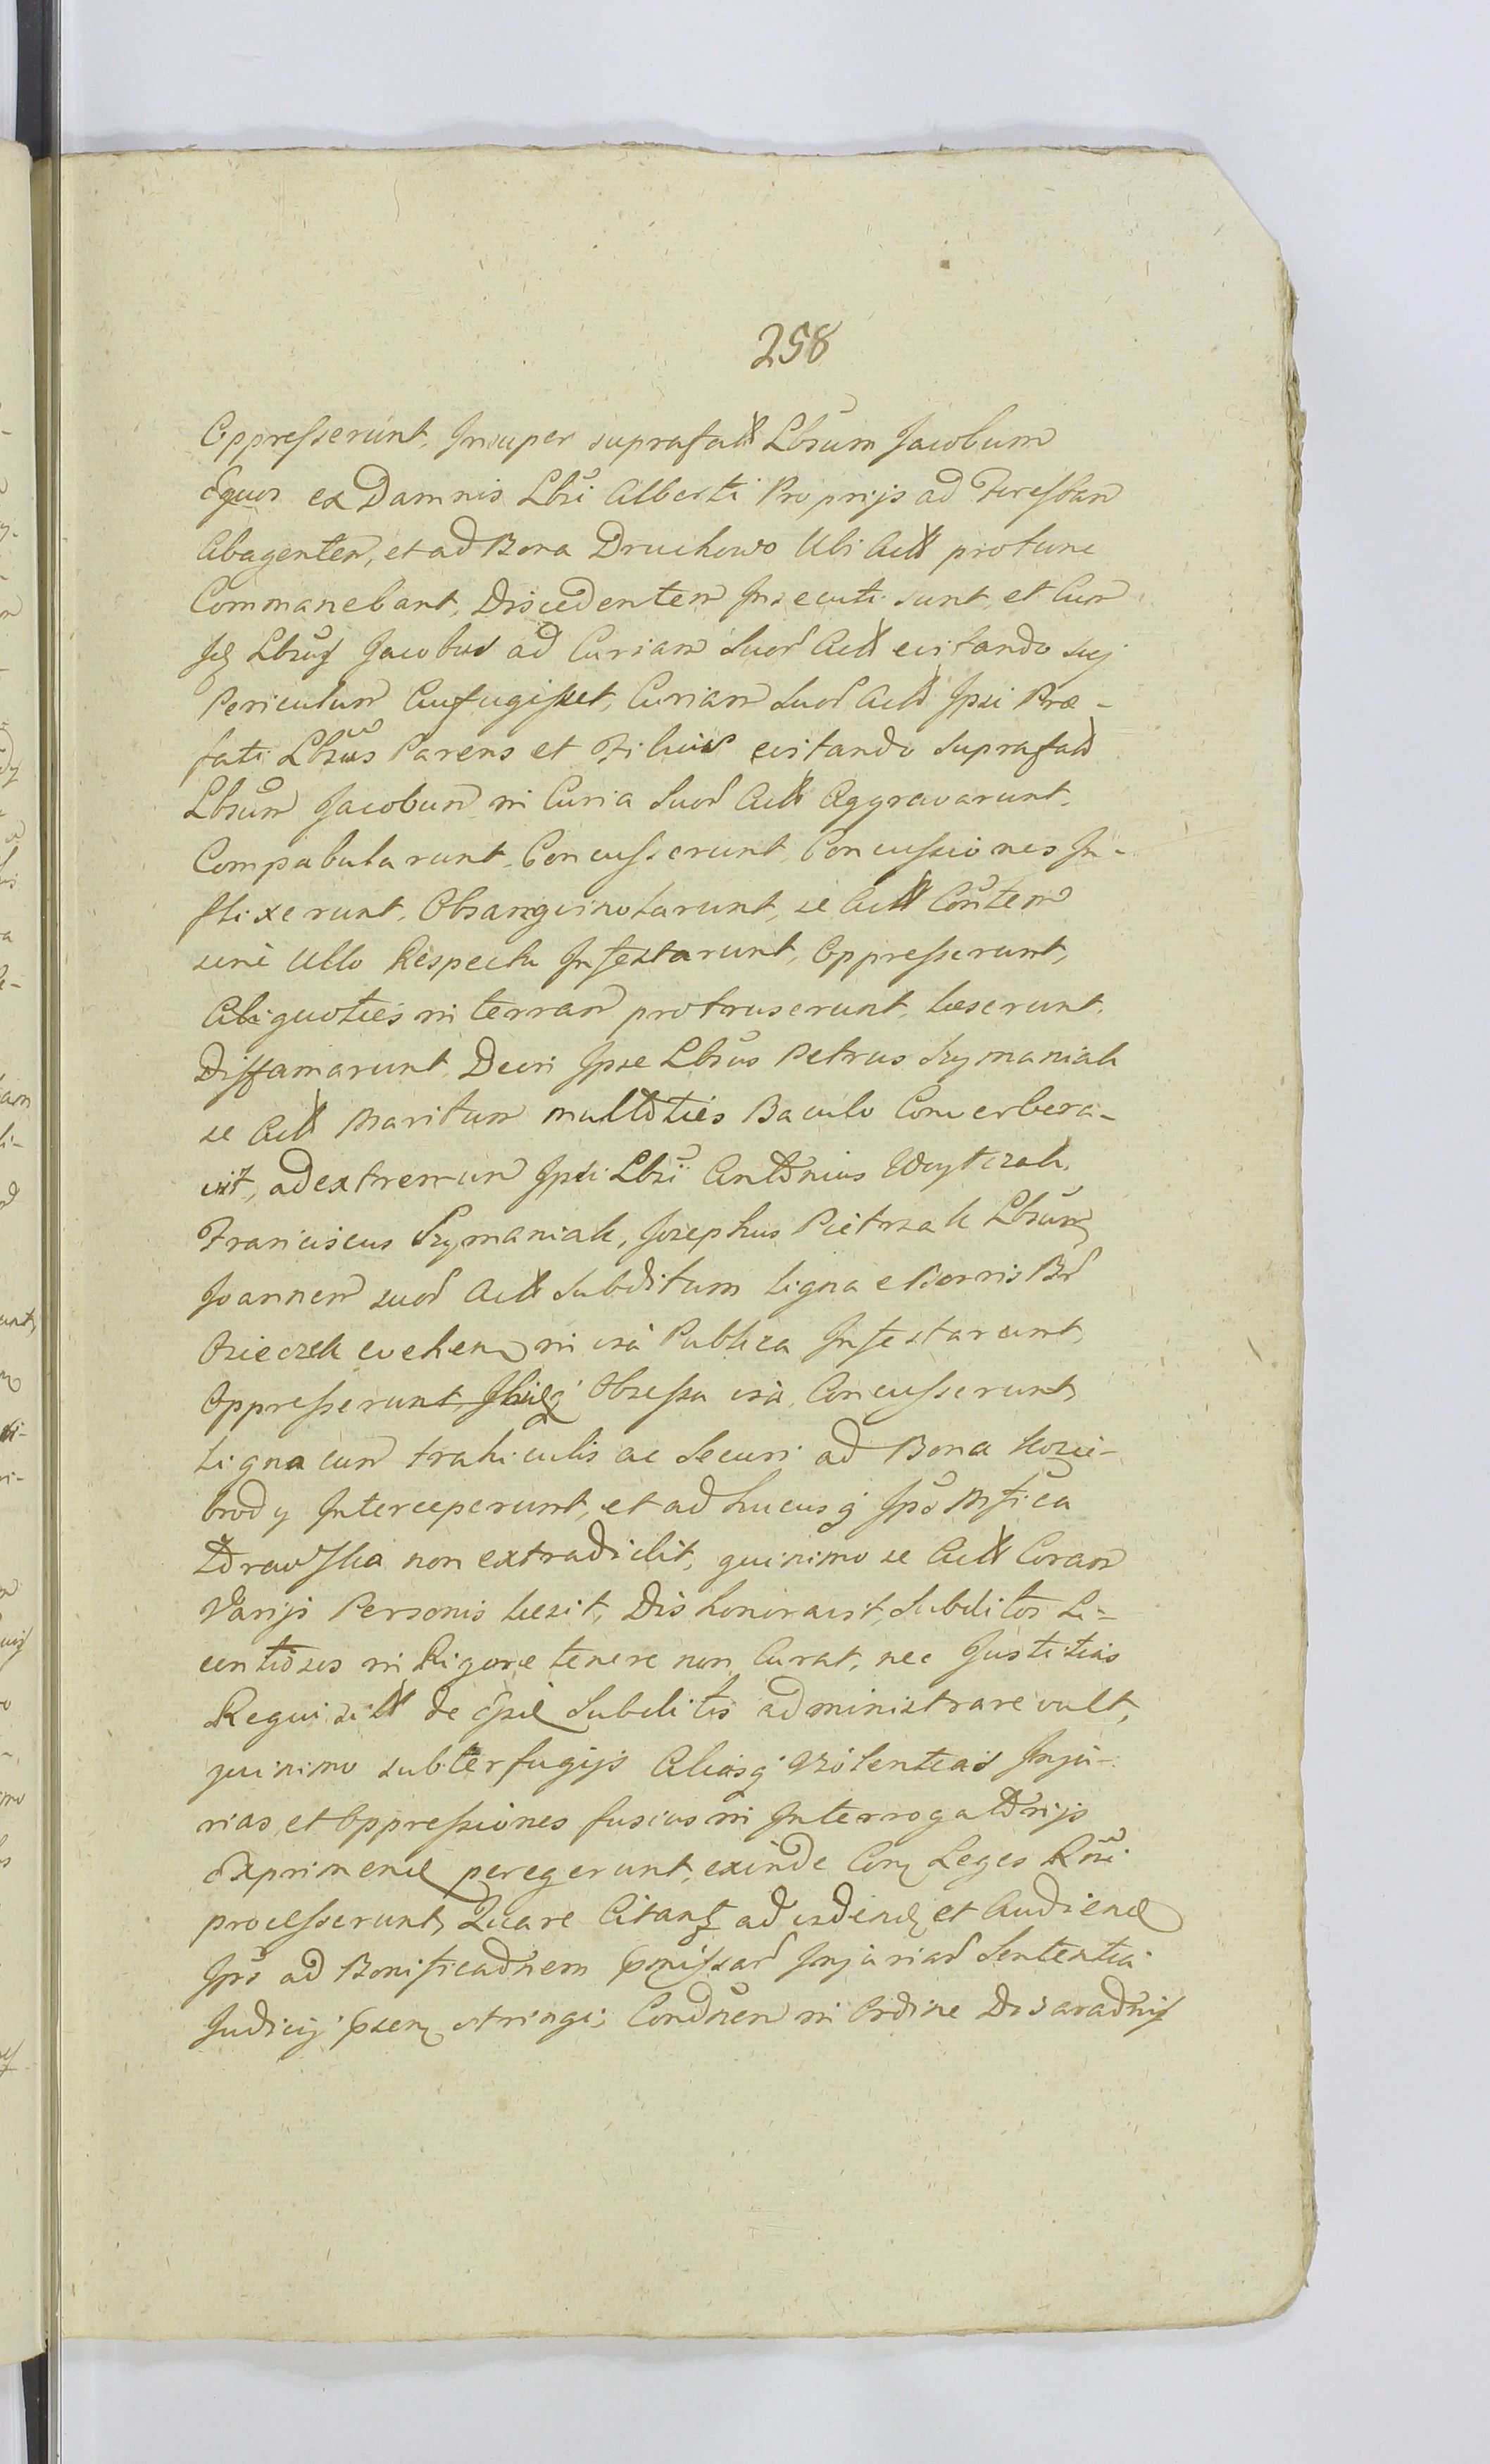 258
Oppresserunt, Insuper suprafatt Lbrum Jacobum
Equos ex Damnis Lbri Alberti Proprijs ad Foresban
Abagentem, et ad Bona Druchowo Ubi Actt protunc
Commanebant, Discedentem Insecuti sunt, et Cum
Jacobus ad Curiam Suor Actt evitando suj
Periculum Aufugisset, Curiam Suor Actt Ipsi Præ-
fati Lbrus Parens et Filius evitando Suprafatt
Lbrum Jacobum in Curia Suor Actt Aggravarunt,
Compabularunt, Concusserunt, Concussiones In-
flixerunt, Obsanguinolarunt, se Actt Contem
sine Ullo Respectu Infestarunt, Oppresserunt,
Aliquoties in terram protruserunt, læserunt,
Diffamarunt, Dein Ipse Lbrus Petrus Szymaniak
se Actt Maritum multoties Baculo Converbera-
vit, ad extremum Ipsi Lbri Antonius Woytczak,
Franciscus Szymaniak, Josephus Pietrzak Lbrum
Joannem suor Actt Subditum ligna e Borris Br
evehen in via Publica Infestarunt,
Oppresserunt, Obsessa via, Concusserunt,
Ligna cum trahiculis ac Securi ad Bona Kozie-
brody Interceperunt, et ad hucusq Ipsa Mfica
Zdrawska non extradidit, quinimo se Actt Coram
Varijs Personis læsit, Dishonoravit, Subditos Li-
centiosos in Rigore tenere non Curat, nec Justitias
Requisitt de Subditis administrare vult,
quinimo subterfugijs Aliasq Violentias Inju-
rias, et Oppressiones fusius in Interrogatorijs
Exprimend peregerunt, exinde Con Leges Rni
processerunt, Quare Citant ad vidend et Audiend
Ipso ad Bonificadnem Injuriar Sententia
Judicij stringi; Condnem in Ordine